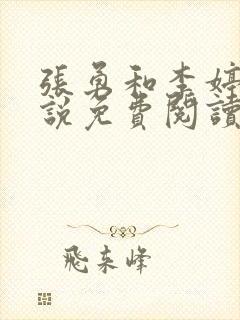 張勇和李婷
說免費閱讀
飛來峰